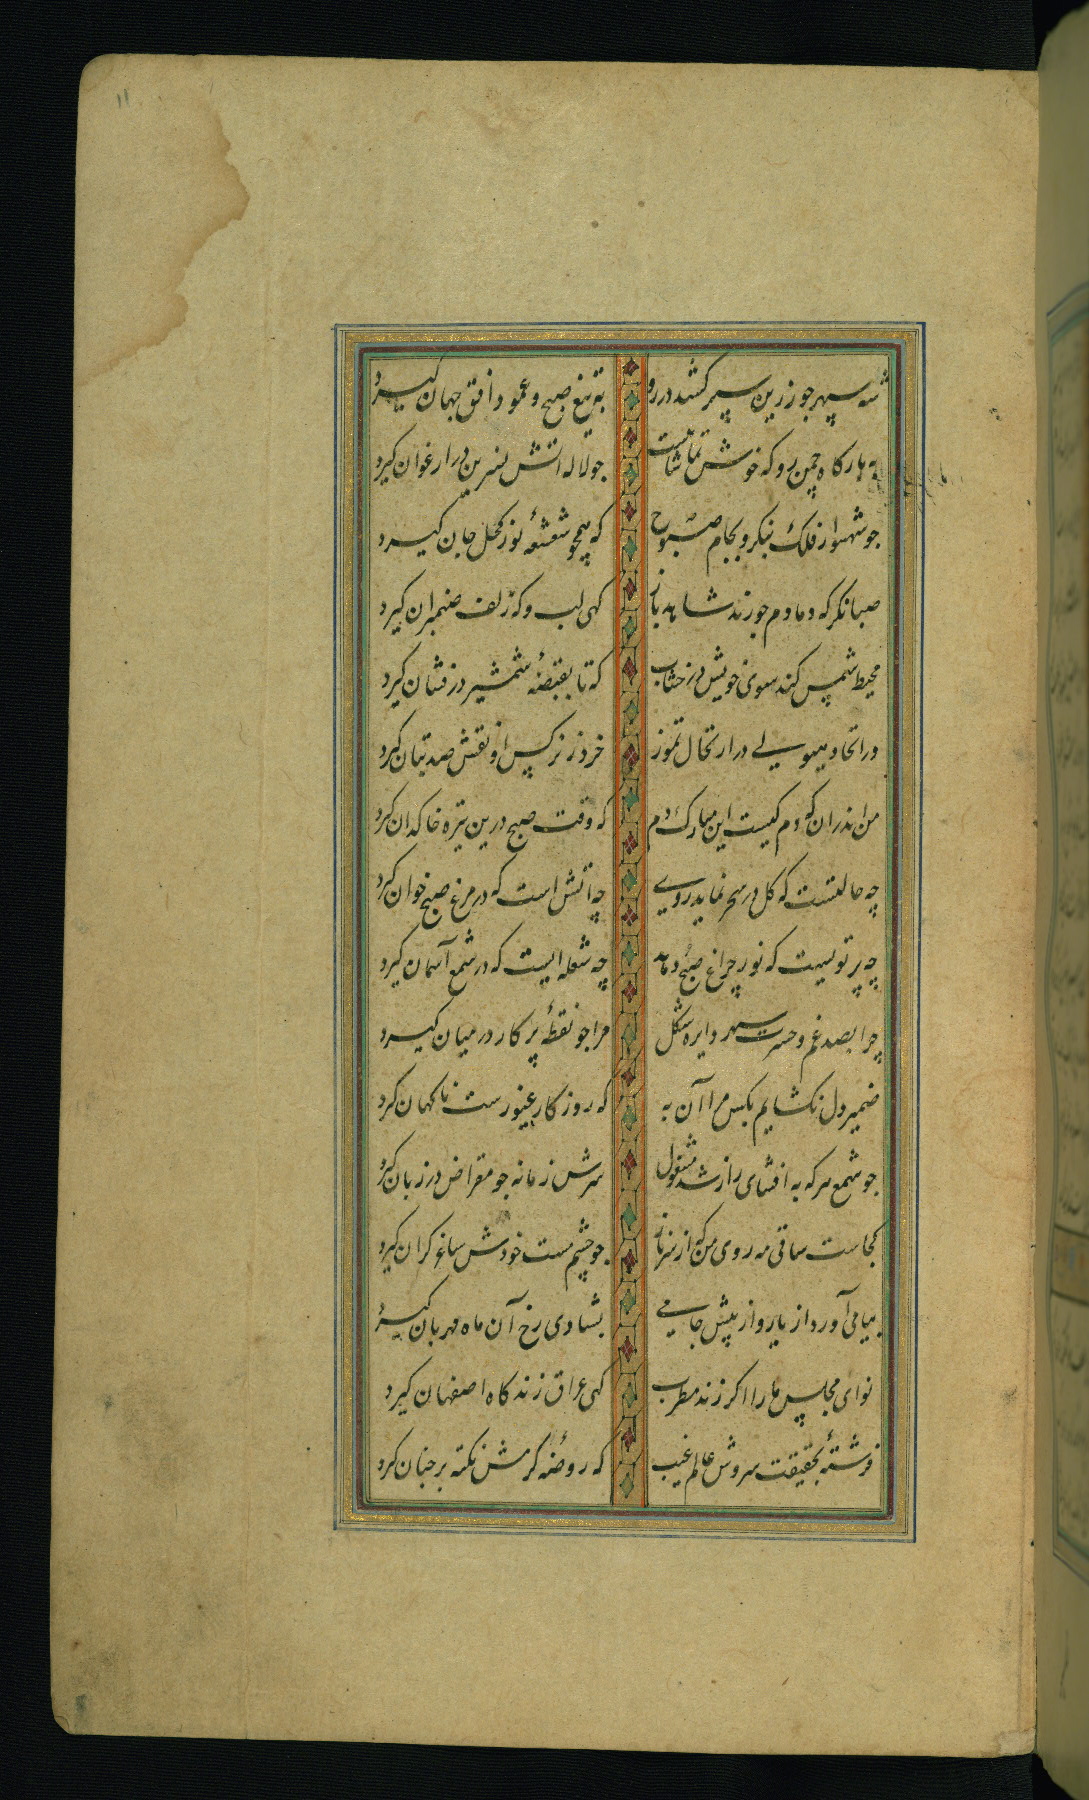 ۱۱
شه سپهر جو زرین سپر کشد در رو
بتیغ صبح و عمود افق جهان کیرد
به بارکاه چمن رو که خوش تماشاییست
جو لاله اتش نسرین در ارغوان کیرد
جو شهسوار فلک بنکرد بجام صبوح
که همچو شعشعه نور کحل جان کیرد
صبا نکر که دمادم جو رند شاهد باز
کهی لب و که زلف ضمیران کیرد
محیط شمس کند سوی خویش در خوشاب
که تا بقبضه شمشیر در فشان کیرد
در اتحاد هیولی در ارتحال تموز
خرد ز نرکس او نقش صد تبان کیرد
من اندران که دم کیست این مبارک دم
که وقت صبح درین تیره خاکدان کیرد
چه حالتست که کل در سحر نماید روی
چه اتش است که در مرغ صبح خوان کیرد
چه پرتویست که نور چراغ صبح دهد
چه شعله ایست که در شمع آسمان کیرد
چرا بصد غم و حسرت سپهر دایره شکل
مرا جو نقطه پرکار در میان کیرد
ضمیر دل نکشایم بکس مرا آن به
که روزکار غیورست ناکهان کیرد
جو شمع هر که به افشای راز شد مشغول
سرش زمانه جو مقراض در زبان کیرد
کجاست ساقی مه روی من که از سر ناز
جو چشم مست خودش ساغر کران کیرد
بیا می آورد از یار و از پیش جامی
بشادی رخ آن ماه مهربان کیرد
نوای مجلس ما را اکر زند مطرب
کهی عراق زند کاه اصفهان کیرد
فرشته بحقیقت سروش عالم غیب
که روضه کرمش نکته بر جنان کیرد